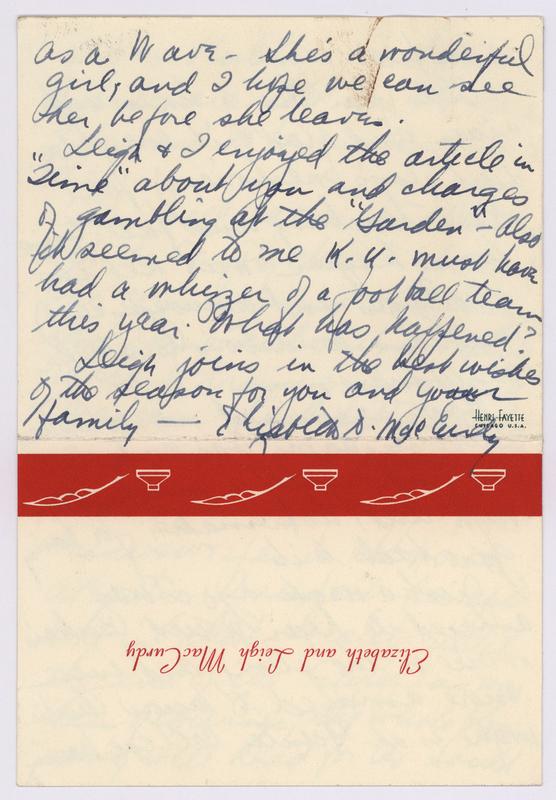 as a Wave - She's a wonderful
girl, and I hope we can see
her before she leaves.
Leigh & I enjoyed the article in
"Time" about you and charges
of gambling at the "Garden" - Also
it seemed to me K.U. must have
had a whizzer of a football team
this year. What has happened?
Leigh joins in the best wishes
of the season for you and your
family — Elizabeth D. MacCurdy
HENRI FAYETTE
CHICAGO U.S.A.
Elizabeth and Leigh MacCurdy